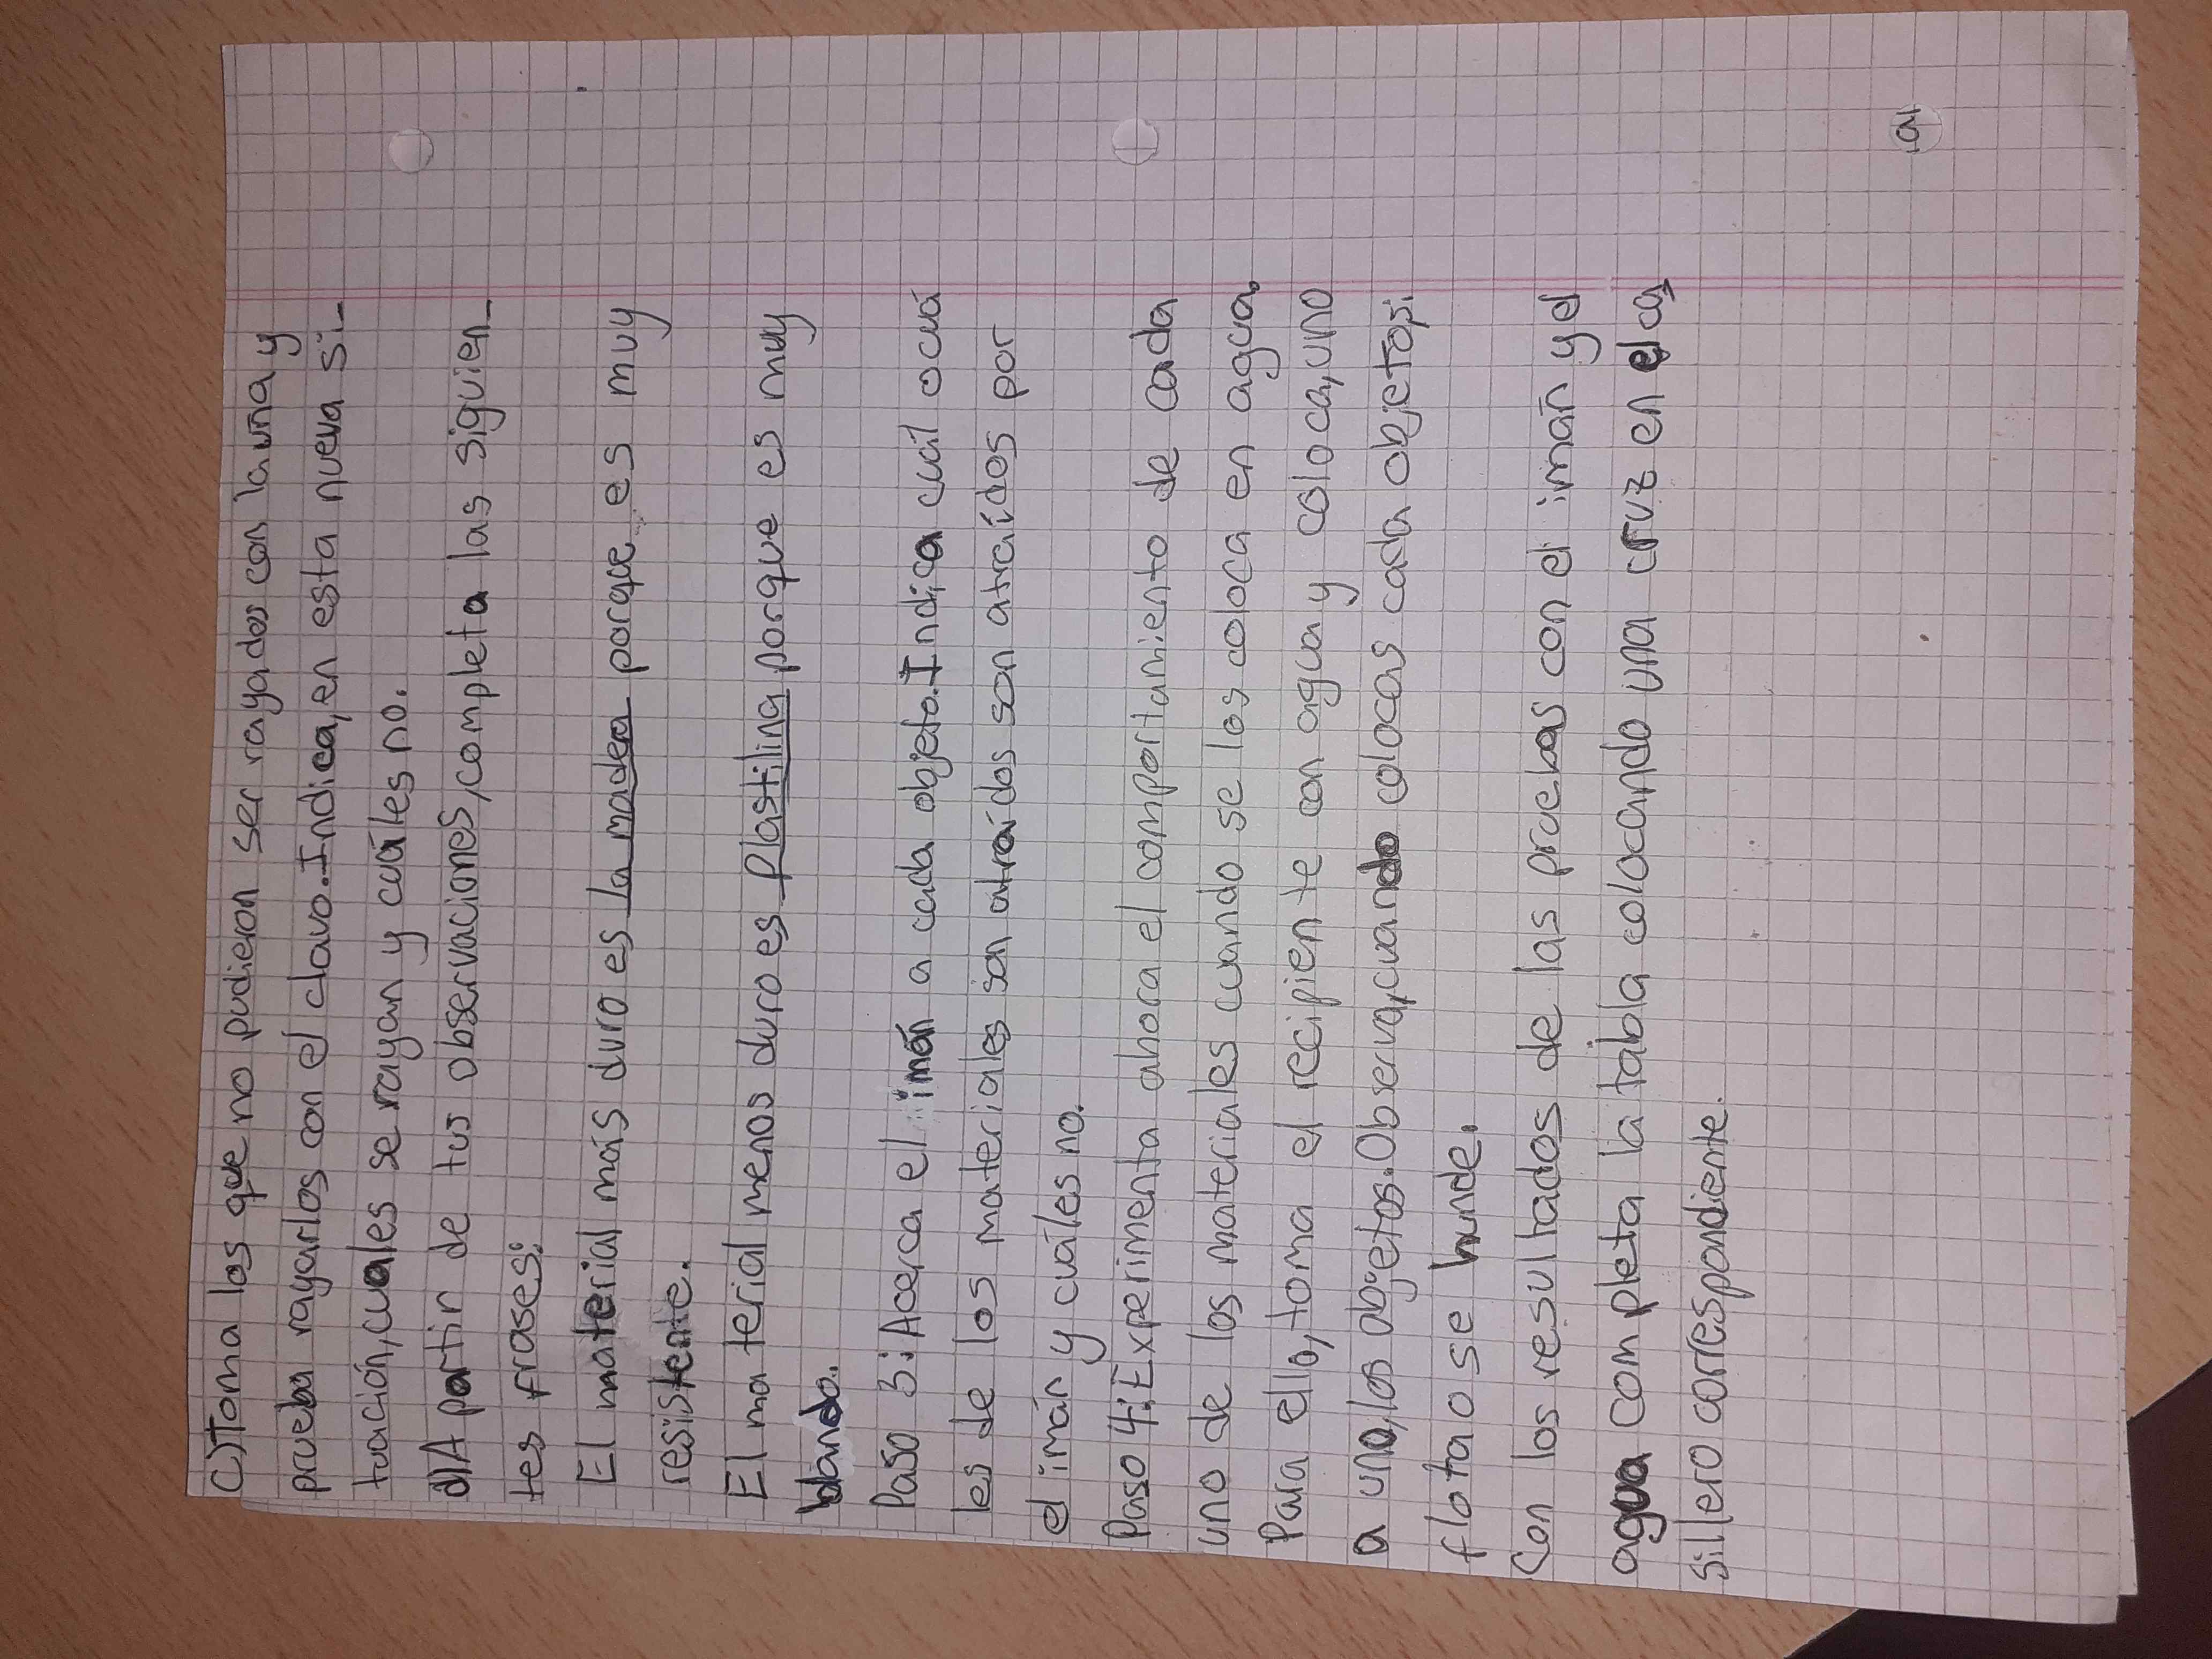 C)Toma los que no pudieron ser rayados con la uña y
prueba rayarlos con el clavo. Indica, en esta nueva si_
tuación, cuales se rayan y cuáles no.
d)A partir de tus observaciones, completa las siguien_
tes frases:
El material más duro es la madera porque es muy
resistente.
El material menos duro es plastilina porque es muy
blando.
Paso 3: Acerca el imán a cada objeto. Indica cuál o cuá
les de los materiales son atraídos son atraídos por
el imán y cuáles no.
Paso 4: Experimenta ahora el comportamiento de cada
uno de los materiales cuando se los coloca en agua.
Para ello, toma el recipiente con agua y coloca, uno
a uno, los objetos. Observa, cuando colocas cada objeto, si
flota o se hunde.
Con los resultados de las pruebas con el imán y el
agua completa la tabla colocando una cruz en el ca_
sillero correspondiente.